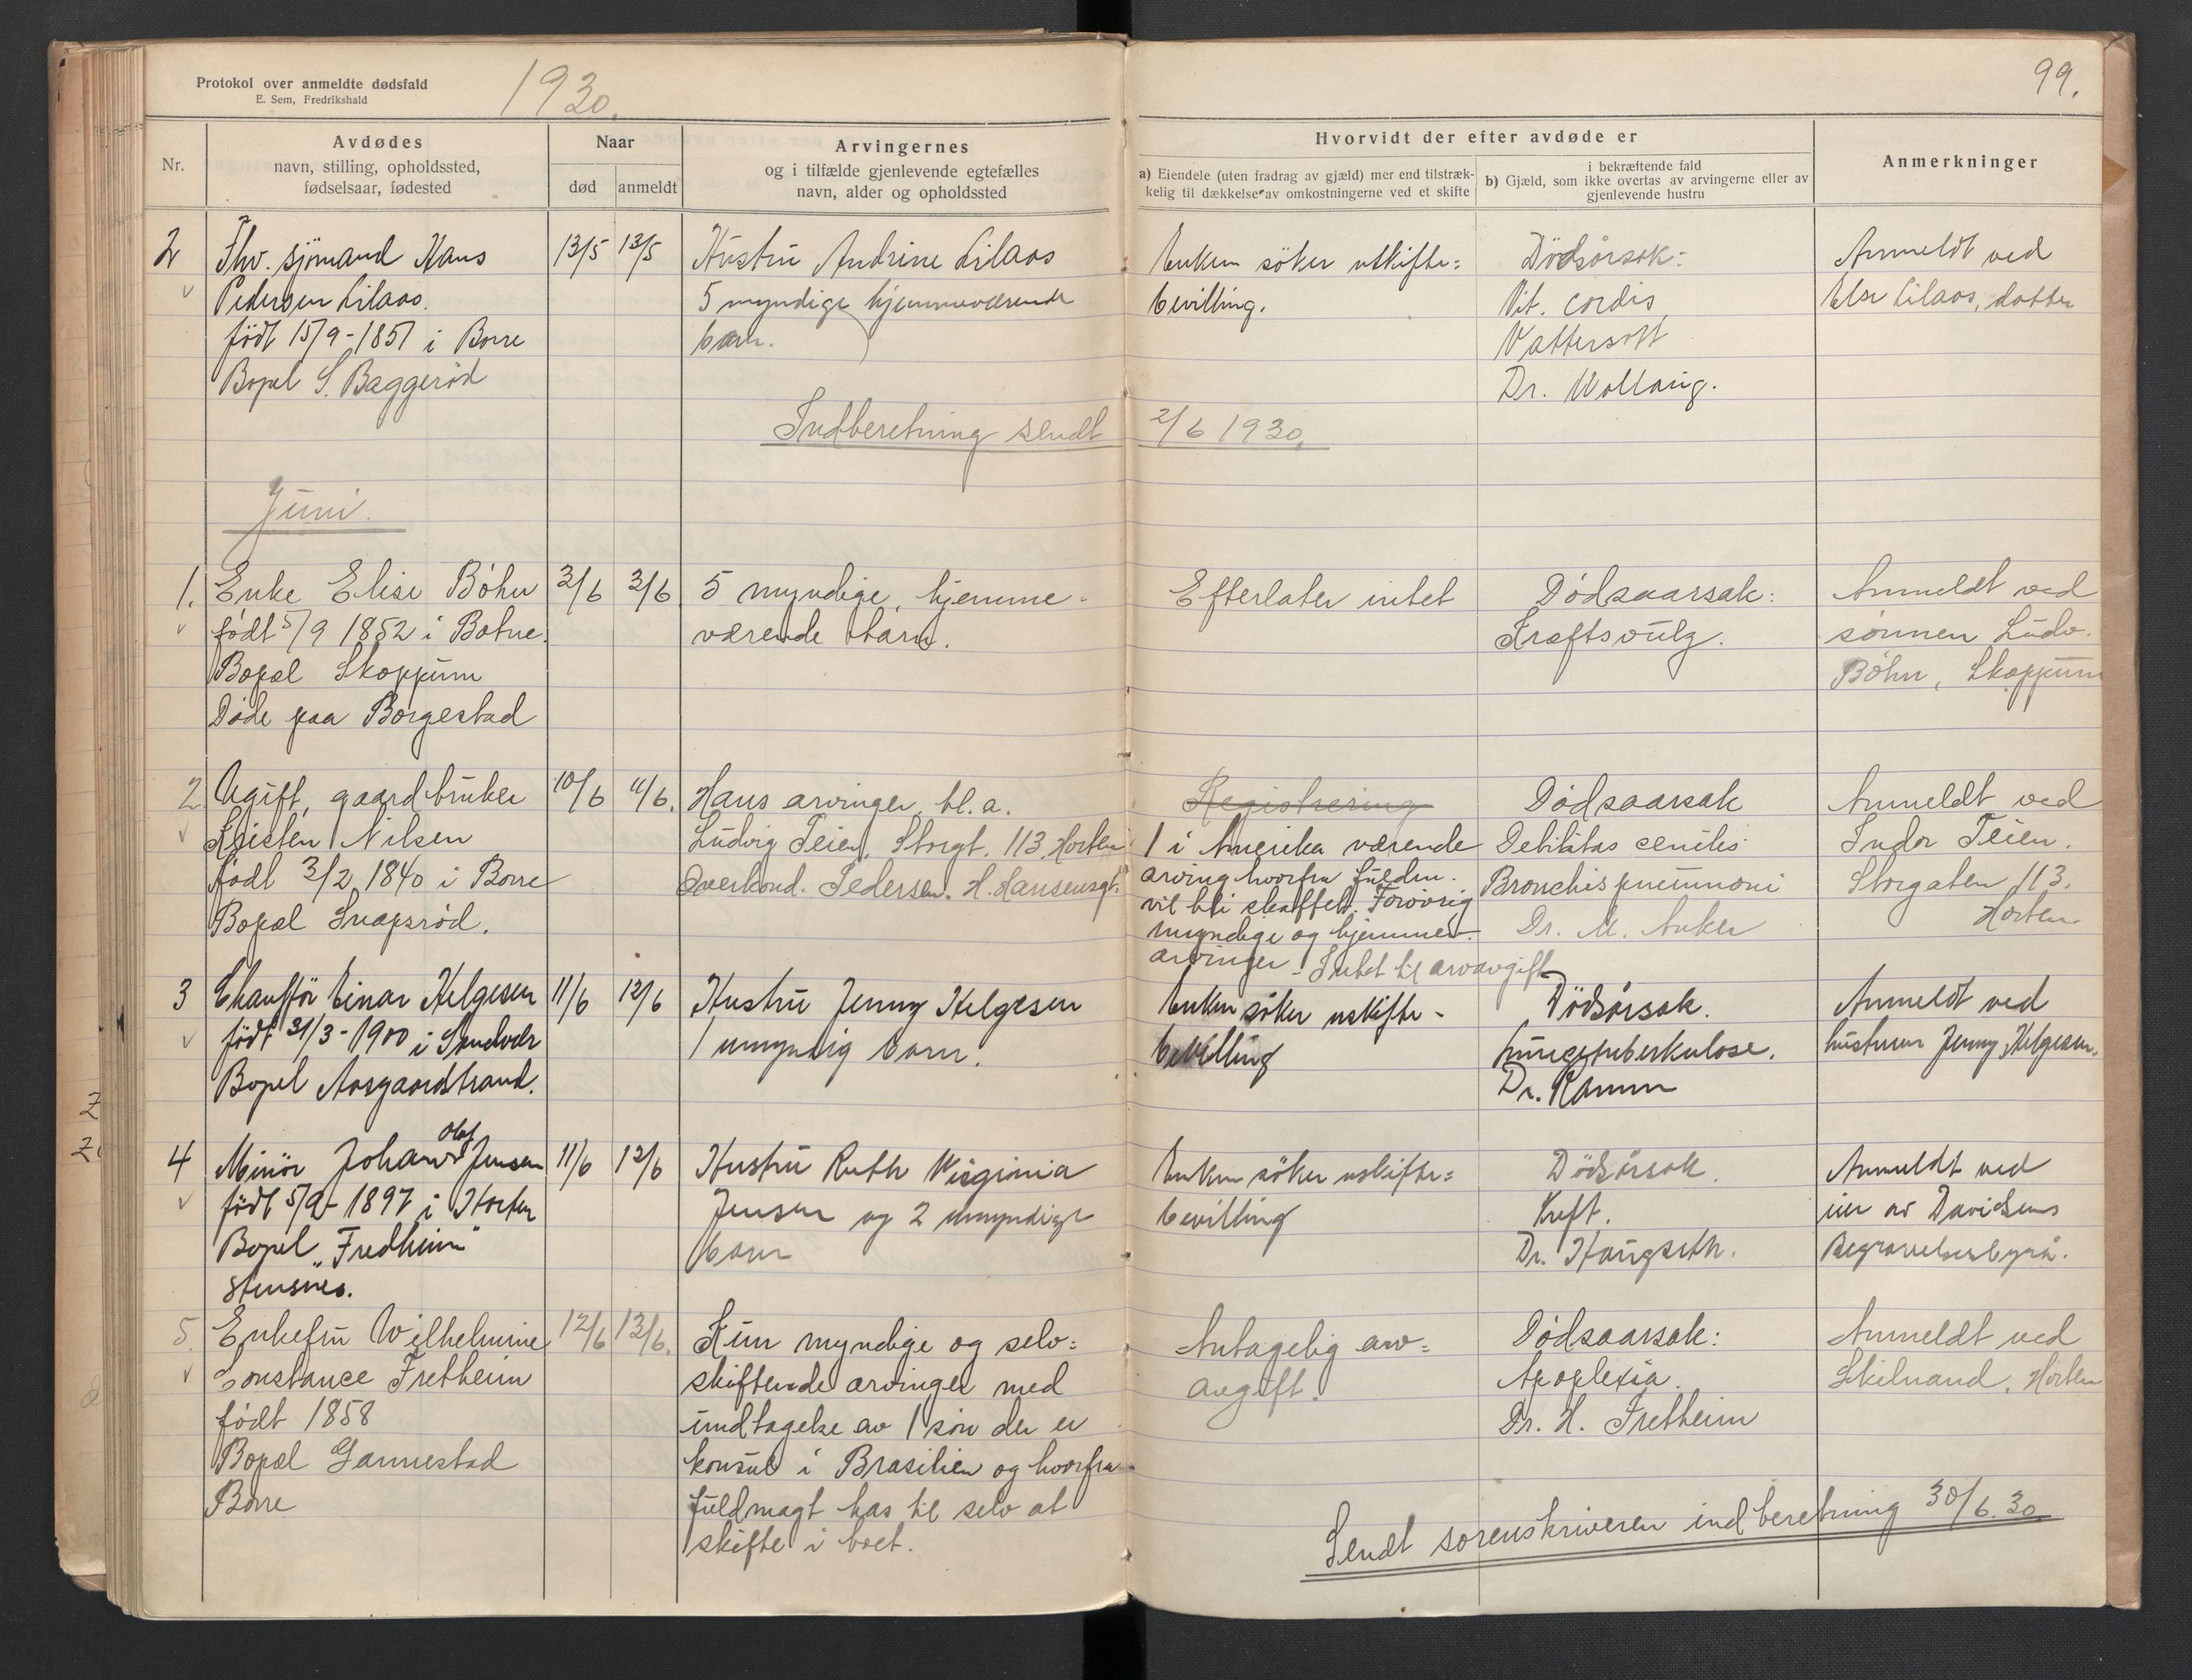 Protokol over anmeldte dødsfald
E. Sem, Fredrikshald
1930.
99.
Nr.
Avdødes
navn, stilling, opholdssted,
fødselsaar, fødested
Naar
død
anmeldt
Arvingernes
og i tilfælde gjenlevende egtefælles
navn, alder og opholdssted
Hvorvidt der efter avdøde er
a) Eiendele (uten fradrag av gjæld) mer end tilstræk-
kelig til dækkelse av omkostningerne ved et skifte
i bekræftende fald
b) Gjæld, som ikke overtas av arvingerne eller av
gjenlevende hustru
Anmerkninger
2
Fhv. sjömand Hans
Pedersen Lilaas.
född 15/9-1851 i Borre
Bopel S. Baggerød
13/5
13/5
Hustru Andrine Lilaas
5 myndige hjemmeværende
barn.
Enken söker uskifte=
bevilling.
Dödsårsok:
Vit. cordis
Vattersott
Dr. Wollang.
Anmeldt ved
Else Lilaas, datter
Indberetning sendt 2/6 1930.
Juni.
1.
Enke Elise Bøhn
født 5/9 1852 i Botne.
Bopæl Skoppum
Døde paa Borgestad
2/6
3/6
5 myndige, hjemme-
værende barn.
Efterlater intet
Dødsaarsak:
Kræftsvulg.
Anmeldt ved
sønnen Ludv.
Bøhn, Skoppum
2
Ugift, gaardbruker
Kristen Nilsen
født 3/2 1840 i Borre
Bopæl Snapsrød.
10/6
11/6.
Hans arvinger, bl.a.
Ludvig Teien, Storgt. 113, Horten
Overkond. Pedersen. H. Hansensgt.
Registrering
1 i Amerika værende
arving hvorfra fuldm.
vil bli skaffet. Forøvrig
myndige og hjemmev.
arvinger - Intet til arvavgift
Dødsaarsak
Debilitas senilis
Bronchispneumoni
Dr. M. Anker
Anmeldt ved
Ludv Teien.
Storgaten 113.
Horten
3
Chaufför Einar Helgesen
född 31/3-1900 i Sandvær
Bopel Aasgaardstrand.
11/6
12/6
Hustru Jenny Helgesen
1 umyndig barn.
Enken söker uskifte-
bevilling
Dödsårsok.
Lungetuberkulose.
Dr. Ramm
Anmeldt ved
hustruen Jenny Helgesen.
4
Minör Johan Olaf Jensen
född 5/9-1897 i Horten
Bopel "Fredheim"
Stensnes.
11/6
12/6
Hustru Ruth Virginia
Jensen og 2 umyndige
barn
Enken söker uskifte=
bevilling
Dödsårsok.
Kreft.
Dr. Haugseth.
Anmeldt ved
eier av Davidsens
Begravelsesbyrå.
5.
Enkefru Wilhelmine
Constance Fretheim
født 1858
Bopæl Gannestad
Borre
12/6
13/6.
Kun myndige og selv=
skiftende arvinger med
undtagelse av 1 søn der er
konsul i Brasilien og hvorfra
fuldmagt has til selv at
skifte i boet.
Antagelig arv=
avgift.
Dødsaarsak:
Apoplexia.
Dr. H. Fretheim
Anmeldt ved
Skilnand, Horten
Sendt sorenskriveren indberetning 30/6.30